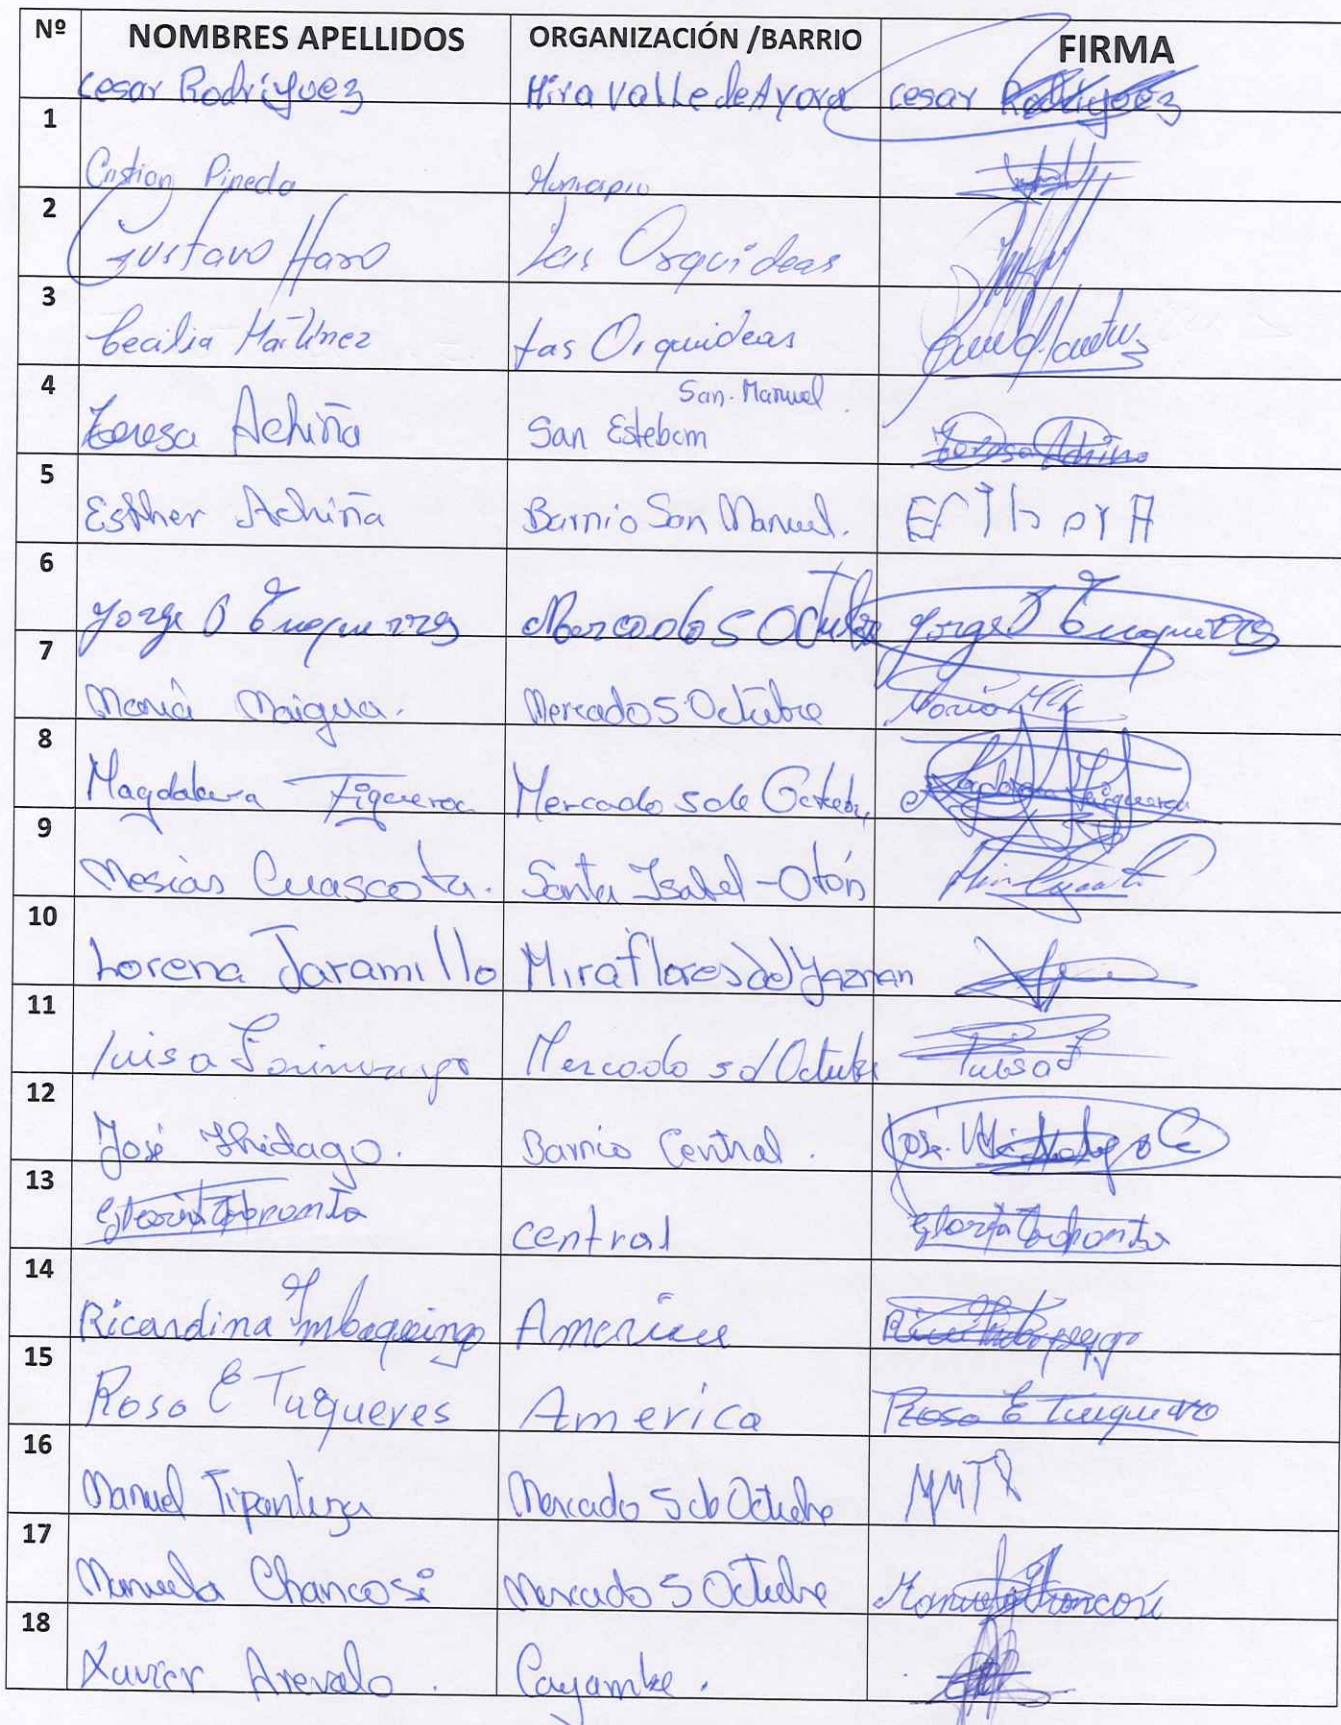 Nº NOMBRES APELLIDOS ORGANIZACIÓN /BARRIO FIRMA
Cesar Rodriguez Miravalle de Ayora Cesar Rodriguez
1 Cristian Pineda Municipio
2 Gustavo Haro Las Orquideas
3 Cecilia Martinez Las Orquideas
San. Manuel
4 Teresa Achiña San Esteban Teresa Achiña
5 Esther Achiña Barrio San Manuel.
6 Jorge Mercado 5 Octubre Jorge
7 María Maigua. Mercado 5 Octubre María
8 Magdalena Figueroa Mercado 5 de Octubre Magdalena Figueroa
9 Mesias Cuascota. Santa Isabel - Otón
10 Lorena Jaramillo Miraflores de Yaznan
11 Luisa Mercado 5 d Octubre Luisa
12 José Hidago. Barrio Central. José
13 Gloria central Gloria
14 Ricardina Imbaquingo America
15 Rosa E Tuqueres America Rosa E
16 Manuel Tipanluiza Mercado 5 de Octubre
17 Manuela Chancosi Mercado 5 Octubre Manuela Chancosi
18 Xavier Arevalo. Cayambe.